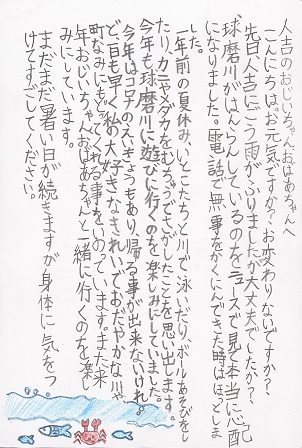 人吉のおじいちゃんおばあちゃんへ
こんにちは。お元気ですか?お変わりないですか?
先日人吉にごう雨がふりましたが大丈夫でしたか?
球磨川がはんらんしているのをニュースで見て本当に心配
になりました。電話で無事をかくにんできた時はほっとしま
した。
一年前の夏休み、いとこたちと川で泳いだりボールあそびをし
たり、カニやメダカをむちゅうでさがしたことを思い出します。
今年も球磨川に遊びに行くのを楽しみにしていました。
今年はコロナのえいきょうもあり、帰る事が出来ないけれ
ど一日も早く私の大好きなきれいでおだやかな川や
町なみにもどってくれる事をいのっています。また来
年おじいちゃんおばあちゃんと一緒に行くのを楽し
みにしています。
まだまだ暑い日が続きますが身体に気をつ
けてすごしてください。